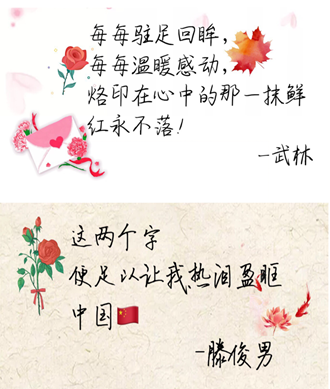 每每驻足回眸，
每每温暖感动，
烙印在心中的那一抹鲜
红永不落！
-武林
这两个字
便足以让我热泪盈眶
中国🇨🇳
-滕俊男